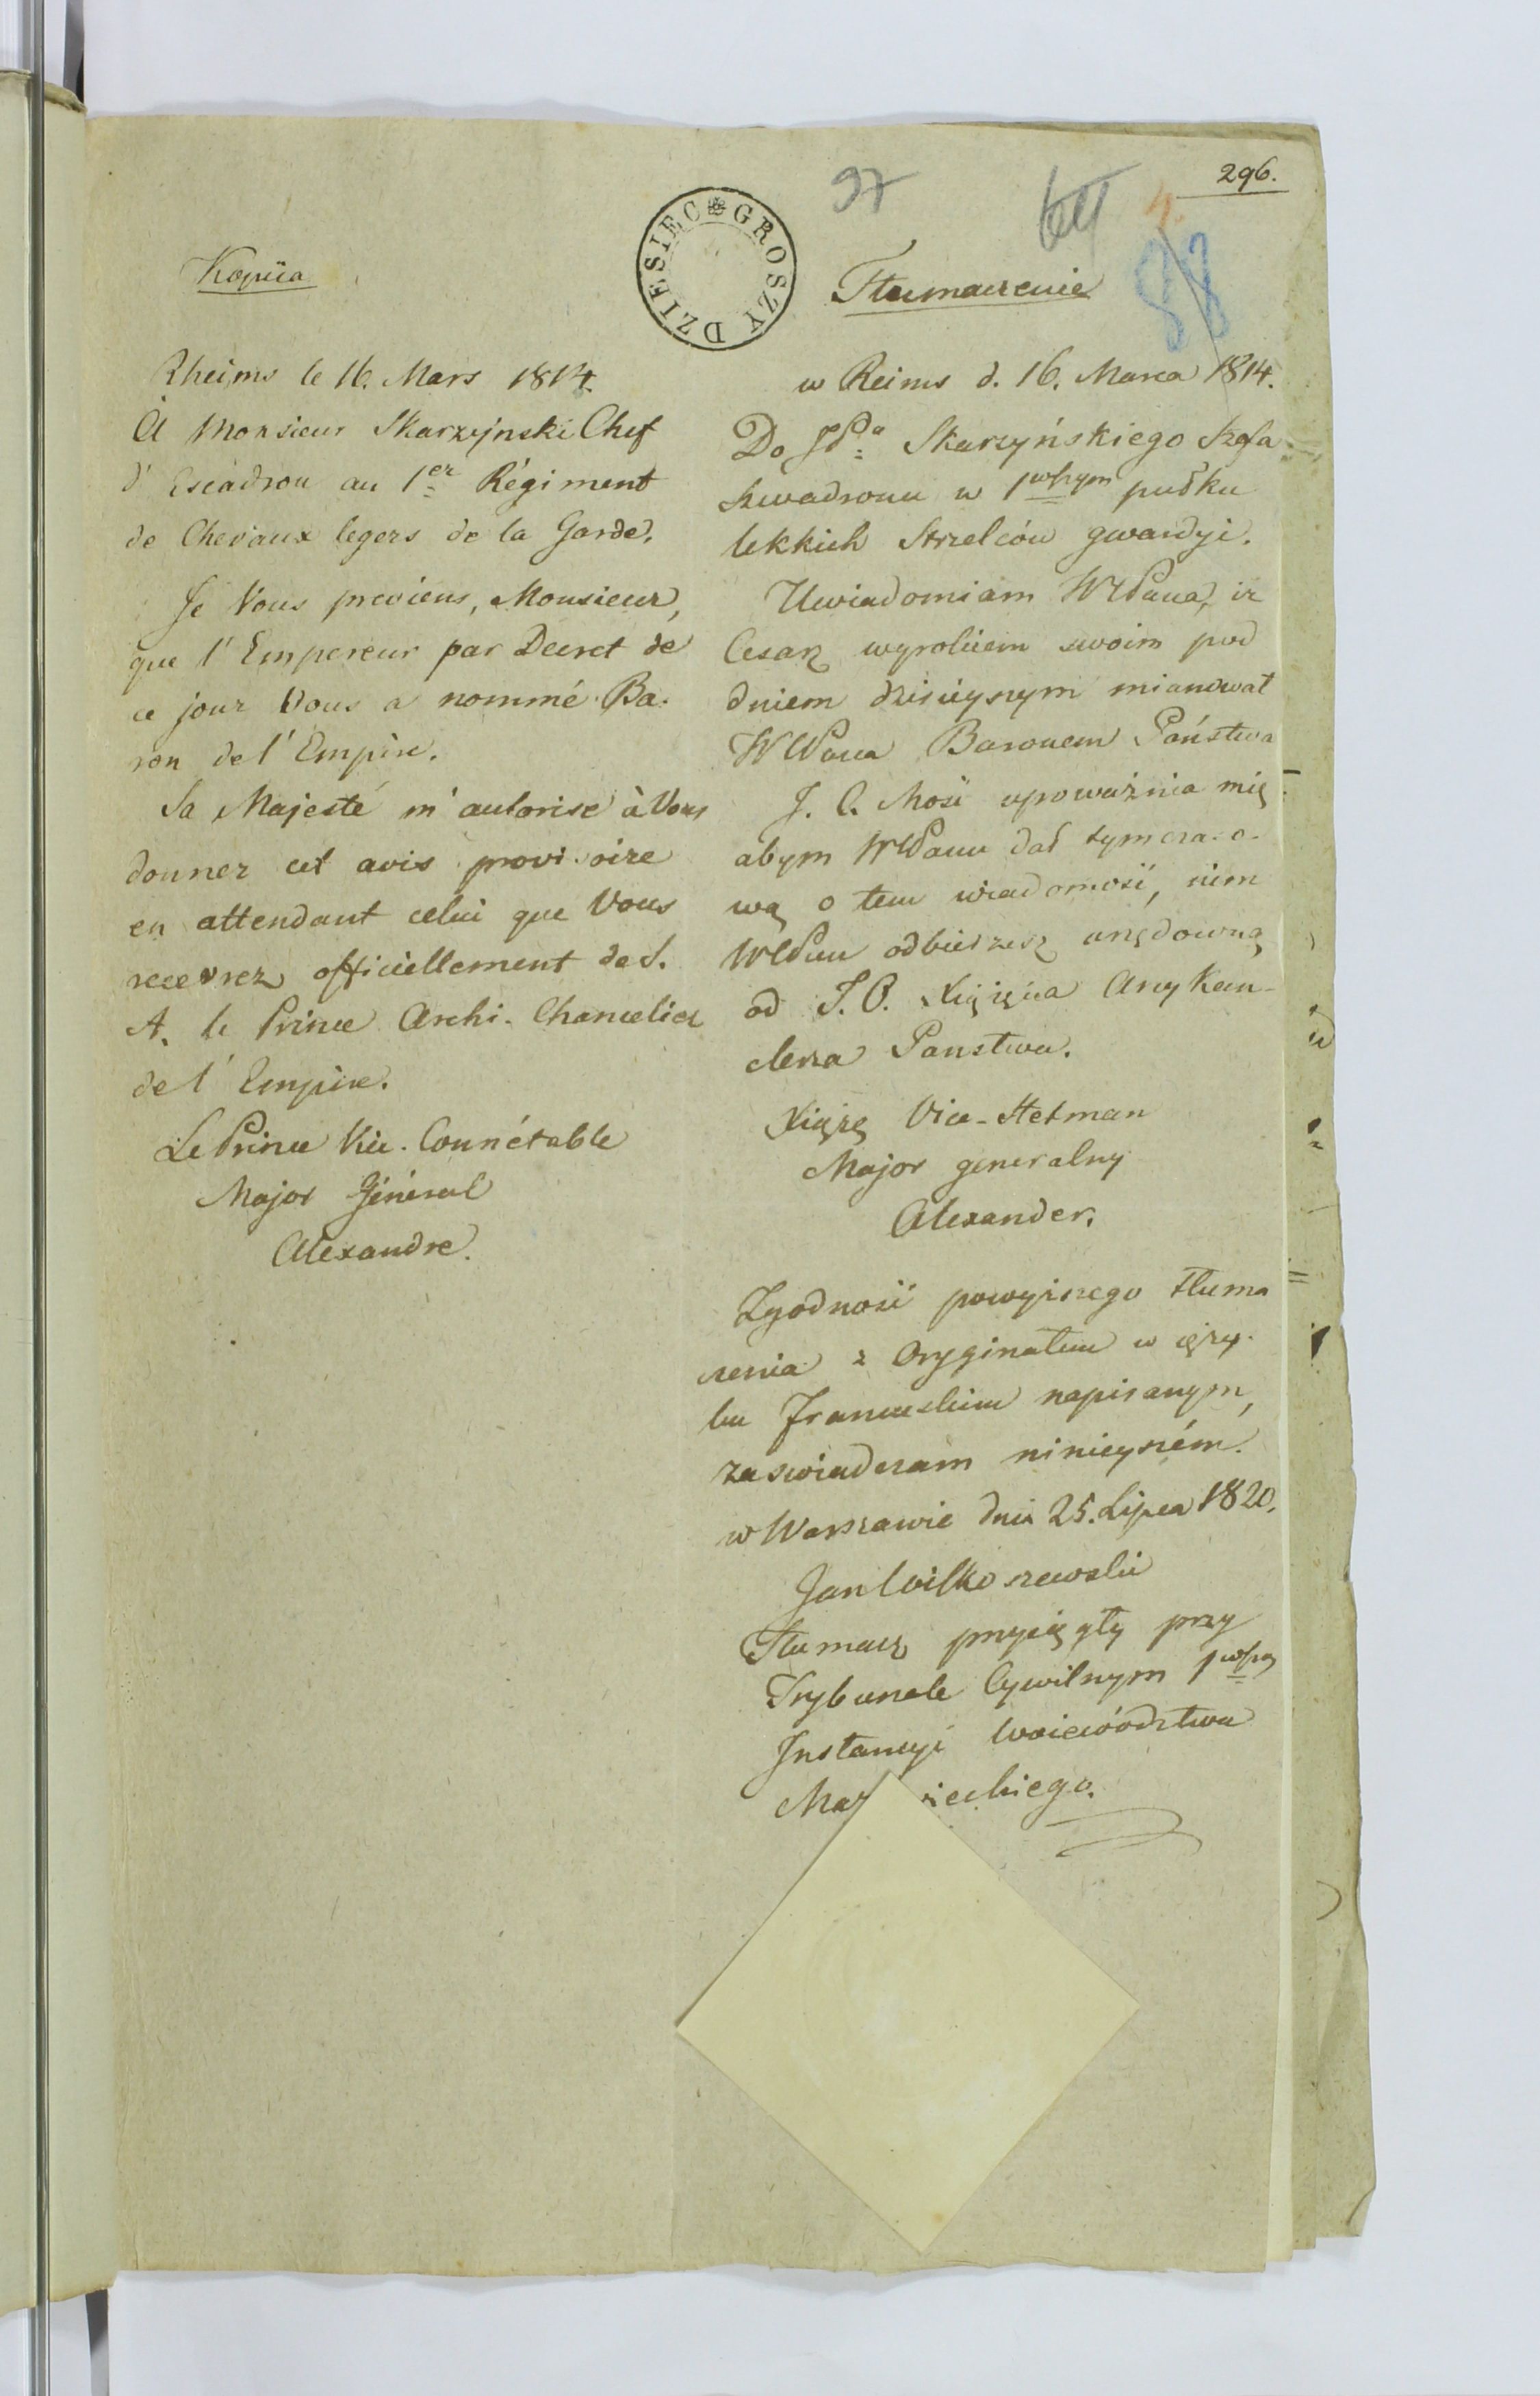 296.
97
64
4.
58
DZIESIEC GROSZY
Kopiia
Rheims le 16. Mars 1814.
À Monsieur Skarzyjnski Chef
d'Escadron au 1er Régiment
de Chevaux legers de la Garde.
Je Vous previens, Monsieur,
que l'Empereur par Decret de
ce jour Vous a nommé Ba-
ron de l'Empire.
Sa Majesté m'autorise à Vous
donner cet avis provisoire
en attendant celui que Vous
recevrez officiellement de S.
A. le Prince Archi-Chancelier
de l'Empire.
Le Prince Vice-Connétable
Major Général
Alexandre.
Tłumaczenie
w Reims d. 16. Marca 1814.
Do JPa Skarzyńskiego Szefa
szwadronu w 1wszym pułku
lekkich Strzelców gwardyi.
Uwiadomiam WPana, iż
Cesarz wyrokiem swoim pod
dniem dzisieyszym mianował
WPana Baronem Państwa
J. C. Mość upoważnia mię
abym WPanu dał tymczaso-
wą o tem wiadomość, nim
WPan odbierzesz urzędowną
od J. O. Xiążęcia Arcykan-
clerza Panstwa.
Xiążę Vice-Hetman
Major generalny
Alexander.
Zgodność powyższego tłuma
czenia z Oryginałem w języ-
ku Francuskim napisanym,
zaswiadczam ninieyszém.
w Warszawie dnia 25. Lipca 1820.
Jan Wilkoszewski
Tłumacz przysięgły przy
Trybunale Cywilnym 1wszey
Instancyi Woiewództwa
Maz wieckiego.